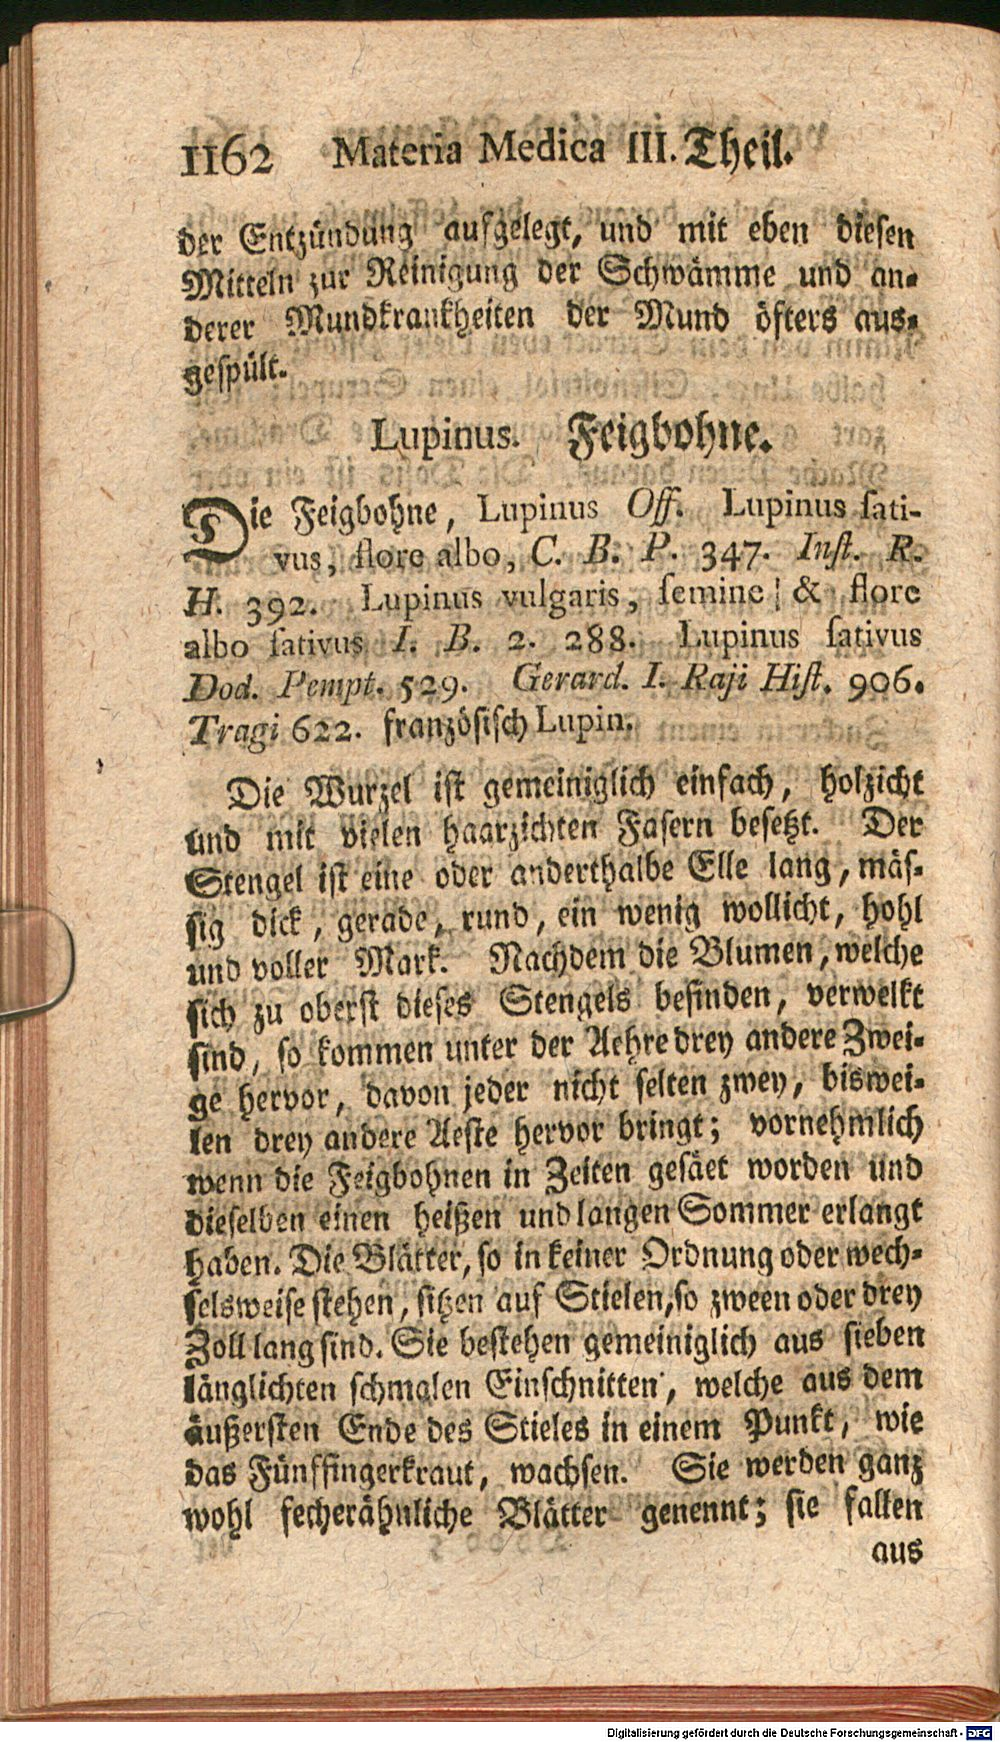 1162 Materia Medica III. Theil.
der Entzündung aufgelegt, und mit eben diesen
Mitteln zur Reinigung der Schwämme und an-
derer Mundkrankheiten der Mund öfters aus-
gespült.
Lupinus. Feigbohne.
Die Feigbohne, Lupinus Off. Lupinus ſati-
vus, flore albo, C. B. P. 347. Inſt. R.
H. 392. Lupinus vulgaris, ſemine & flore
albo ſativus I. B. 2. 288. Lupinus ſativus
Dod. Pempt. 529. Gerard. I. Raji Hiſt. 906.
Tragi 622. franzöſiſch Lupin.
Die Wurzel iſt gemeiniglich einfach, holzicht
und mit vielen haarzichten Faſern beſetzt. Der
Stengel iſt eine oder anderthalbe Elle lang, mäſ-
ſig dick, gerade, rund, ein wenig wollicht, hohl
und voller Mark. Nachdem die Blumen, welche
ſich zu oberſt dieſes Stengels befinden, verwelkt
ſind, ſo kommen unter der Aehre drey andere Zwei-
ge hervor, davon jeder nicht ſelten zwey, biswei-
len drey andere Aeſte hervor bringt; vornehmlich
wenn die Feigbohnen in Zeiten geſäet worden und
dieſelben einen heißen und langen Sommer erlangt
haben. Die Blätter, ſo in keiner Ordnung oder wech-
ſelsweiſe ſtehen, ſitzen auf Stielen, ſo zween oder drey
Zoll lang ſind. Sie beſtehen gemeiniglich aus ſieben
länglichten ſchmalen Einſchnitten, welche aus dem
äußerſten Ende des Stieles in einem Punkt, wie
das Fünffingerkraut, wachſen. Sie werden ganz
wohl fecherähnliche Blätter genennt; ſie fallen
aus
Digitalisierung gefördert durch die Deutsche Forschungsgemeinschaft - DFG